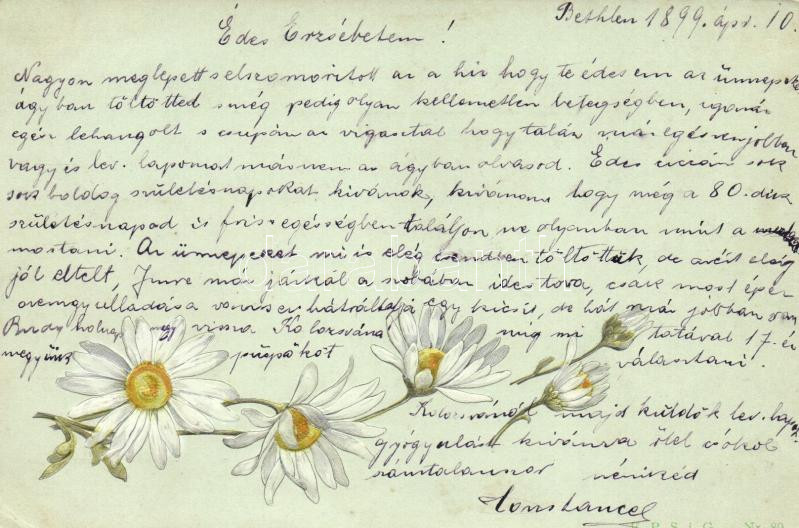 Bethlen 1899. ápr. 10.
Édes Erzsébetem!
Nagyon meglepett s elszomoritott az a hir hogy te édesem az ünnepeket
ágyban töltötted s még pedig olyan kellemetlen betegségben, igazán
egész lehangolt s csupán az vigasztal hogy talán már egészen jobban
vagy és lev. lapomat már nem az ágyban olvasod. Édes cziczám sok
sok boldog születésnapokat kivánok, kivánom hogy még a 80. dik
születésnapod is friss egészségben találjon ne olyanban mint a
mostani. Az ünnepeket mi is elég csendben töltöttük, de azért elég
jól eltelt, Imre már járkál a szobában ide s tova, csak most épen
szemgyulladása van s ez hátráltatja egy kicsit, de hát már jobban van
Rudy holnap megy vissza Kolozsvárra mig mi tatával 17-én
megyünk püspököt választani.
Kolozsvárról majd küldök lev. lapot.
gyógyulást kivánva ölel csókol
számtalanszor nénikéd
Constance
E. R. S. i. G. Nr. 80